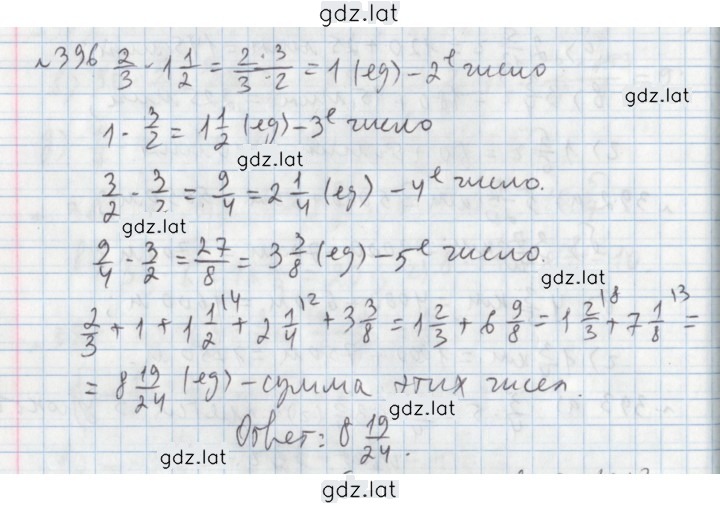 gdz.lat
№396 2/3 · 1 1/2 = 2·3/3·2 = 1 (ед) – 2е число
gdz.lat
1 · 3/2 = 1 1/2 (ед) – 3е число
gdz.lat
3/2 · 3/2 = 9/4 = 2 1/4 (ед) – 4е число.
gdz.lat
9/4 · 3/2 = 27/8 = 3 3/8 (ед) – 5е число.
gdz.lat
2/3 + 1 + 1 1/2 \4 + 2 1/4 \2 + 3 3/8 = 1 2/3 + 6 9/8 = 1 2/3 \8 + 7 1/8 \3 =
= 8 19/24 (ед) – сумма этих чисел.
gdz.lat
Ответ: 8 19/24.
gdz.lat
gdz.lat